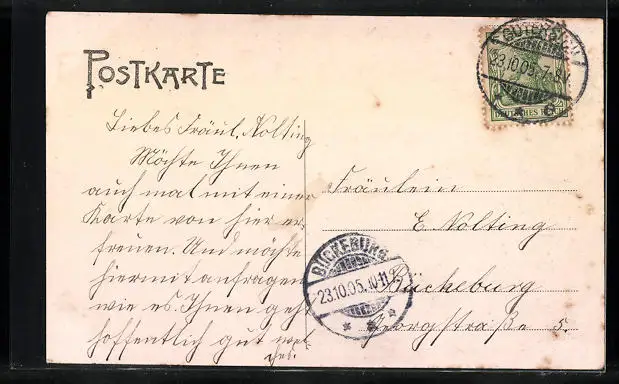 POSTKARTE
Liebes Fräul. Nolting
Möchte Ihnen
auch mal mit einer
Karte von hier er-
freuen. Und möchte
hiermit anfragen
wie es Ihnen geht
hoffentlich gut
Fräulein
E. Nolting
Bückeburg
Georgstraße 5.
BÜCKEBURG
23.10.05. 10-11
23.10.05. 7-8
DEUTSCHES REICH